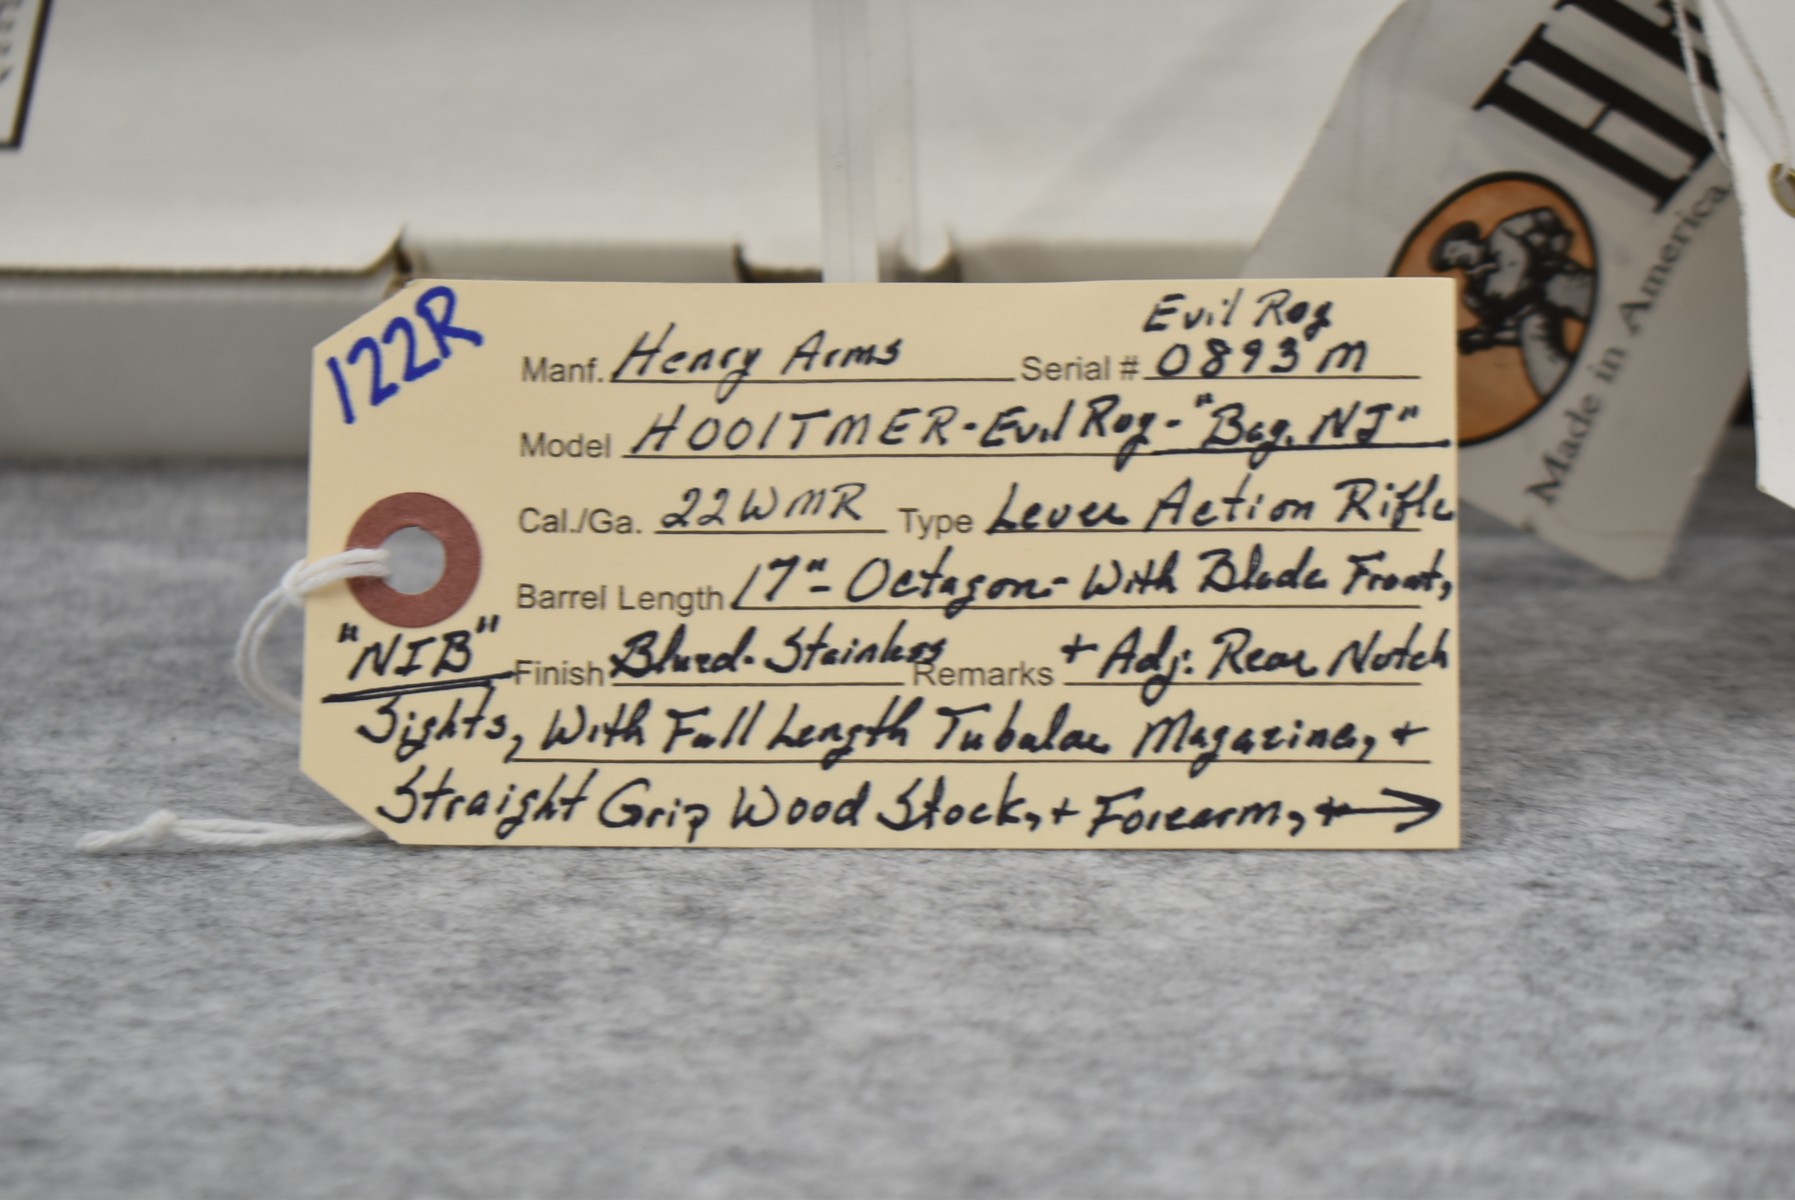 122R
Evil Roy
Manf. Henry Arms Serial # 0893 M
Model H001TMER - Evil Roy - "Bay, NJ"
Cal./Ga. 22 WMR Type Lever Action Rifle
Barrel Length 17" - Octagon - With Blade Front,
"NIB" Finish Blued - Stainless Remarks + Adj. Rear Notch
Sights, With Full Length Tubular Magazine, +
Straight Grip Wood Stock, + Forearm, + →
Made in America